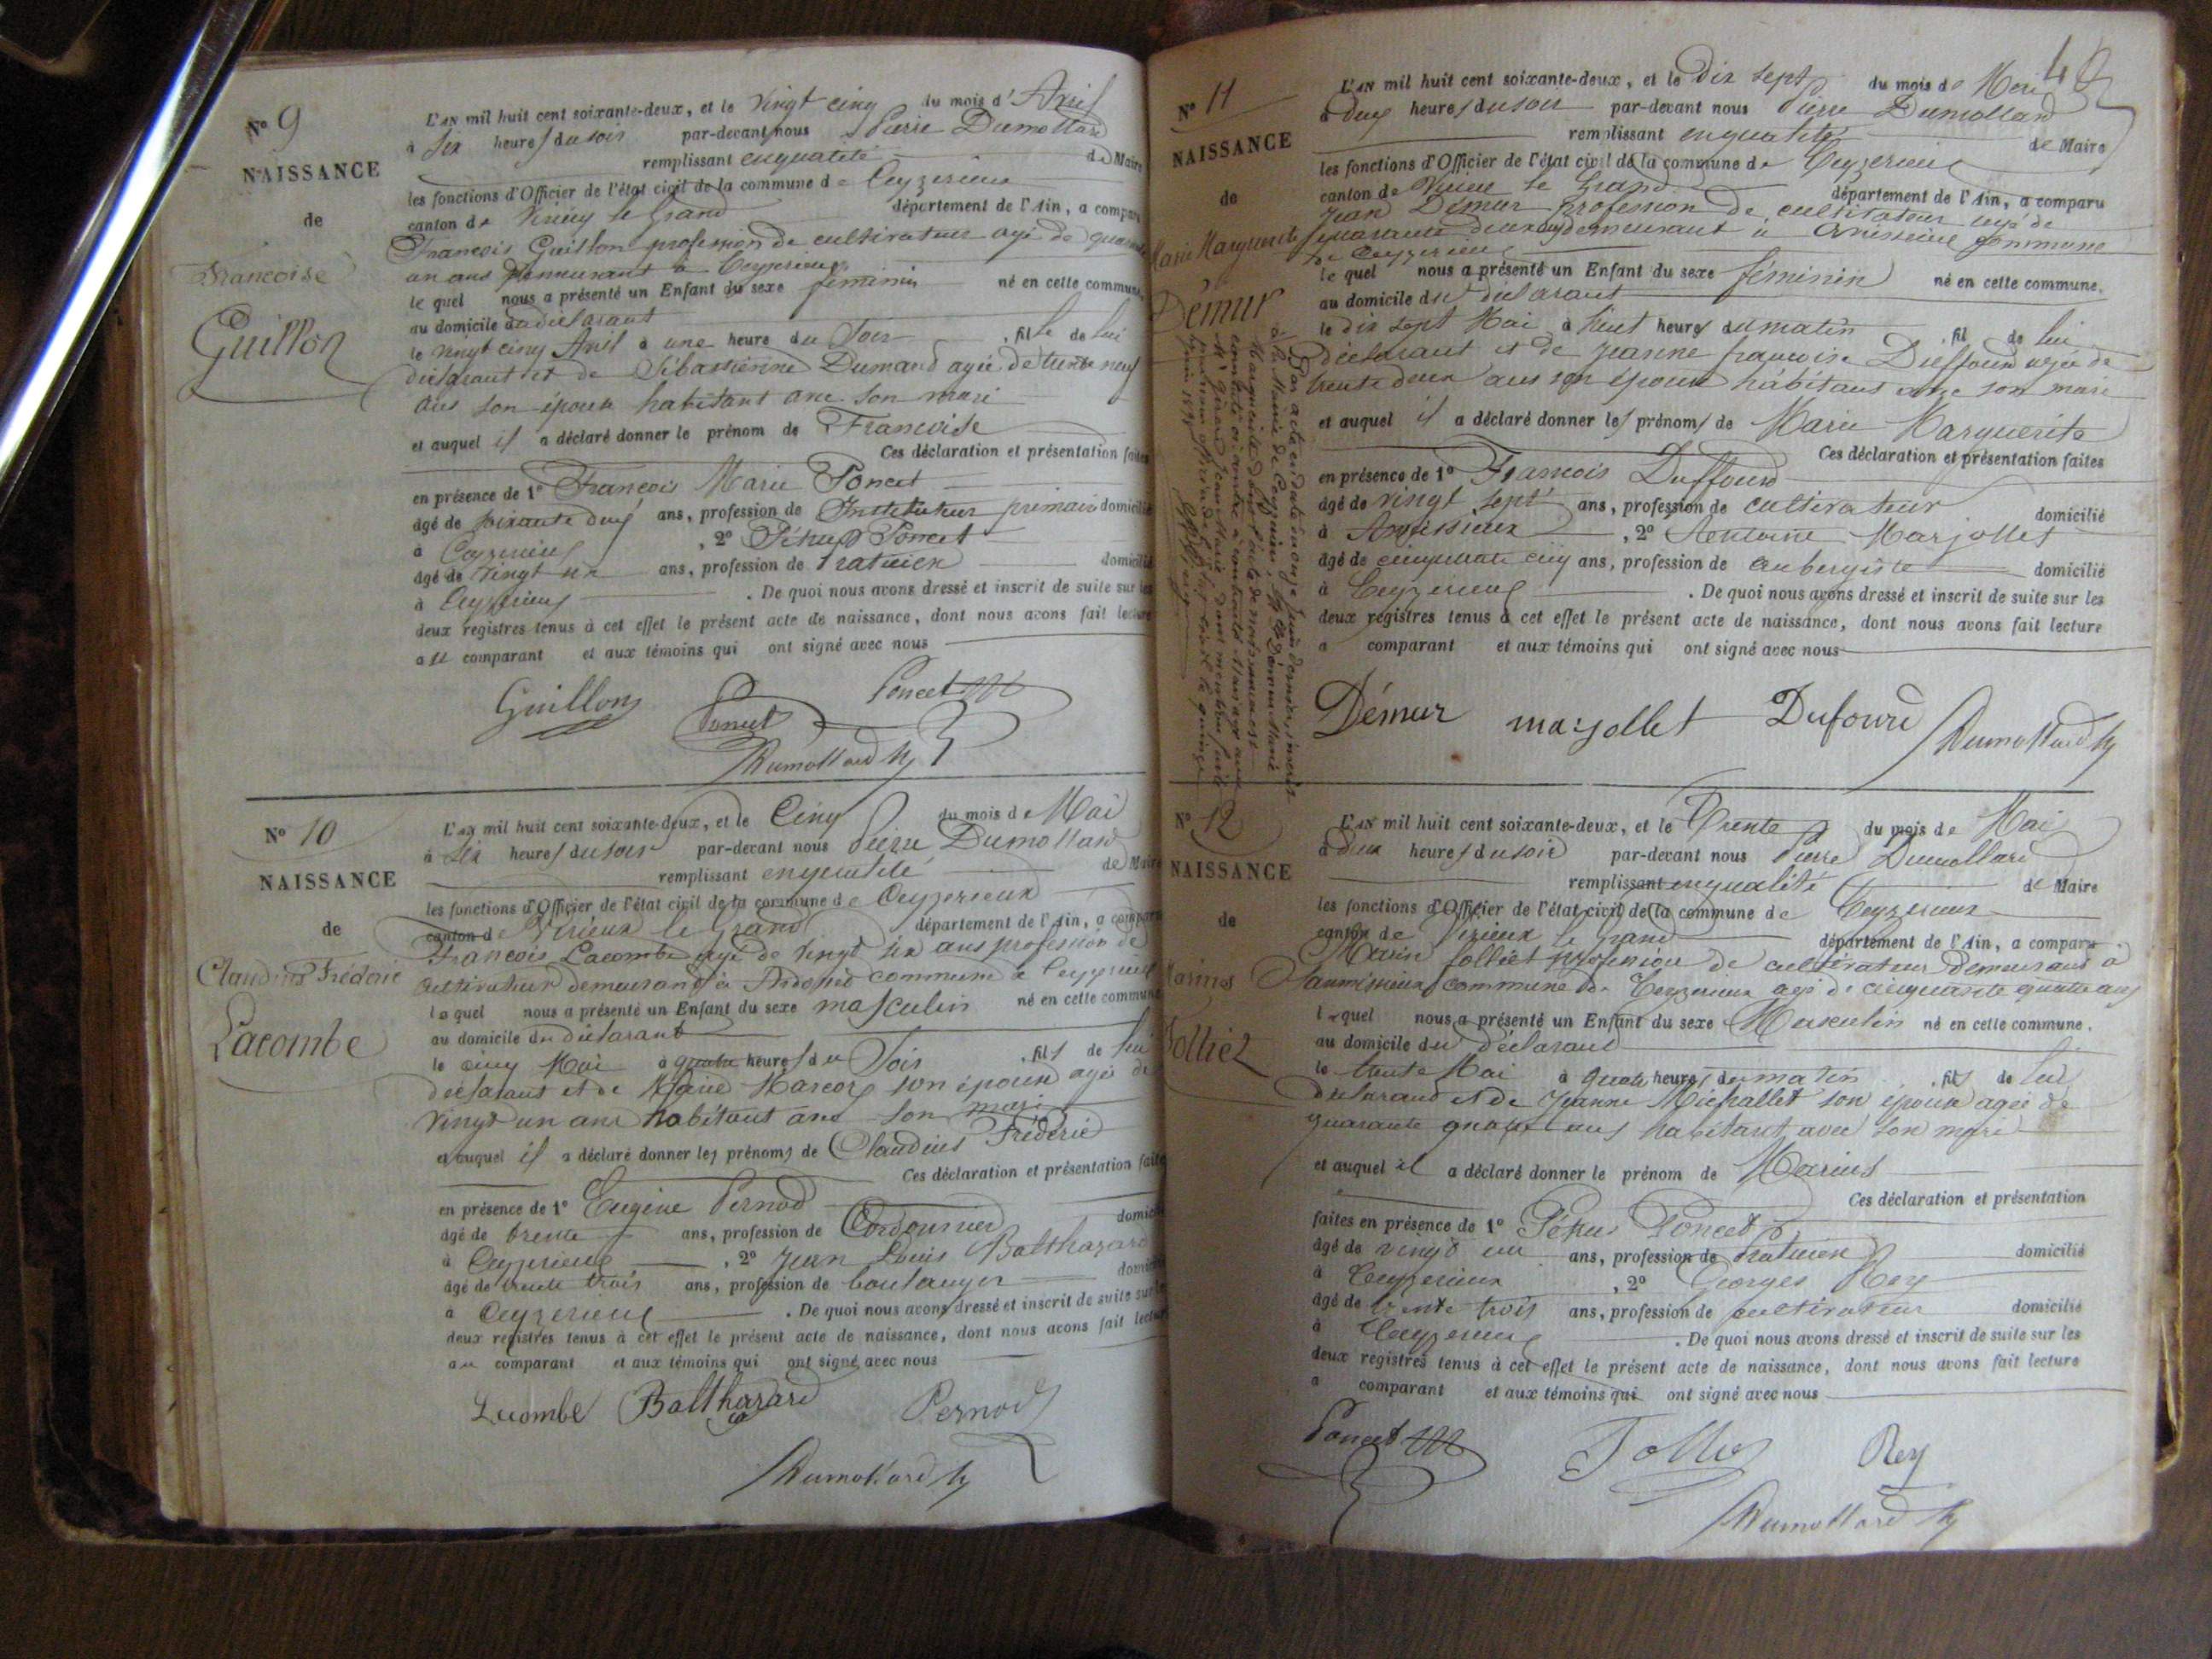 N° 9
NAISSANCE
de
Francoise
Guillon
L'AN mil huit cent soixante-deux, et le Vingt cinq du mois d'Avril
à Six heures du soir par-devant nous Pierre Dumollard
remplissant en qualité de Maire
les fonctions d'Officier de l'état civil de la commune de Ceyzerieux
canton de Virieu le Grand département de l'Ain, a comparu
François Guillon profession de cultivateur agé de quarante
un ans demeurant à Ceyzerieux
le quel nous a présenté un Enfant du sexe feminin né en cette commune,
au domicile du déclarant
le vingt cinq Avril à une heure du Soir , fille de lui
déclarant et de Sébastienne Dumand agée de trente neuf
ans son épouse habitant avec son mari
et auquel il a déclaré donner le prénom de Francoise
Ces déclaration et présentation faites
en présence de 1° François Marie Poncet
âgé de soixante deux ans, profession de Instituteur primaire domicilié
à Ceyzerieux , 2° Pétrus Poncet
âgé de vingt un ans, profession de Praticien domicilié
à Ceyzerieux . De quoi nous avons dressé et inscrit de suite sur les
deux registres tenus à cet effet le présent acte de naissance, dont nous avons fait lecture
au comparant et aux témoins qui ont signé avec nous
Guillon Poncet Poncet
Dumollard
N° 10
NAISSANCE
de
Claudius Fréderic
Lacombe
L'AN mil huit cent soixante-deux, et le Cinq du mois de Mai
à Six heures du soir par-devant nous Pierre Dumollard
remplissant en qualité de Maire
les fonctions d'Officier de l'état civil de la commune de Ceyzerieux
canton de Virieux le Grand département de l'Ain, a comparu
François Lacombe agé de vingt six ans profession de
cultivateur demeurant à Ardosset commune de Ceyzerieux
lequel nous a présenté un Enfant du sexe masculin né en cette commune
au domicile du déclarant
le cinq Mai à quatre heures du Soir , fils de lui
déclarant et de Marie son épouse agée de
vingt un ans habitant avec son mari
et auquel il a déclaré donner les prénoms de Claudius Fréderic
Ces déclaration et présentation faites
en présence de 1° Eugène Pernod
âgé de trente ans, profession de Cordonnier domicilié
à Ceyzerieux , 2° Jean Louis Balthazard
âgé de trente trois ans, profession de boulanger domicilié
à Ceyzerieux . De quoi nous avons dressé et inscrit de suite sur les
deux registres tenus à cet effet le présent acte de naissance, dont nous avons fait lecture
au comparant et aux témoins qui ont signé avec nous
Lacombe Balthazard Pernod
Dumollard
N° 11
NAISSANCE
de
Marie Marguerite
Démur
L'AN mil huit cent soixante-deux, et le dix sept du mois de Mai
à deux heures du soir par-devant nous Pierre Dumollard
remplissant en qualité de Maire
les fonctions d'Officier de l'état civil de la commune de Ceyzerieux
canton de Virieu le Grand département de l'Ain, a comparu
Jean Démur profession de cultivateur agé de
quarante deux ans demeurant à Avrissieux commune
de Ceyzerieux
le quel nous a présenté un Enfant du sexe féminin né en cette commune,
au domicile du déclarant
le dix sept Mai à huit heures du matin , fil de lui
déclarant et de Jeanne françoise Duffourd agée de
trente deux ans son épouse habitant avec son mari
et auquel il a déclaré donner les prénoms de Marie Marguerite
Ces déclaration et présentation faites
en présence de 1° Francois Duffourd
âgé de vingt sept ans, profession de cultivateur domicilié
à Avrissieux , 2° Antoine Marjollet
âgé de cinquante cinq ans, profession de aubergiste domicilié
à Ceyzerieux . De quoi nous avons dressé et inscrit de suite sur les
deux registres tenus à cet effet le présent acte de naissance, dont nous avons fait lecture
a comparant et aux témoins qui ont signé avec nous
Démur marjollet Dufourd Dumollard
N° 12
NAISSANCE
de
Marius
Folliet
L'AN mil huit cent soixante-deux, et le Trente du mois de Mai
à deux heures du soir par-devant nous Pierre Dumollard
remplissant en qualité de Maire
les fonctions d'Officier de l'état civil de la commune de Ceyzerieux
canton de Virieux le grand département de l'Ain, a comparu
folliet profession de cultivateur demeurant à
commune de Ceyzerieux agé de cinquante quatre ans
lequel nous a présenté un Enfant du sexe Masculin né en cette commune,
au domicile du déclarant
le trente Mai à quatre heures du matin , fils de lui
déclarant et de Jeanne Michallet son épouse agée de
quarante quatre ans habitant avec son mari
et auquel il a déclaré donner le prénom de Marius
Ces déclaration et présentation
faites en présence de 1° Pétrus Poncet
âgé de vingt un ans, profession de Praticien domicilié
à Ceyzerieux , 2° Georges Rey
âgé de trente trois ans, profession de cultivateur domicilié
à Ceyzerieux . De quoi nous avons dressé et inscrit de suite sur les
deux registres tenus à cet effet le présent acte de naissance, dont nous avons fait lecture
a comparant et aux témoins qui ont signé avec nous
Poncet Folliet Rey
Dumollard